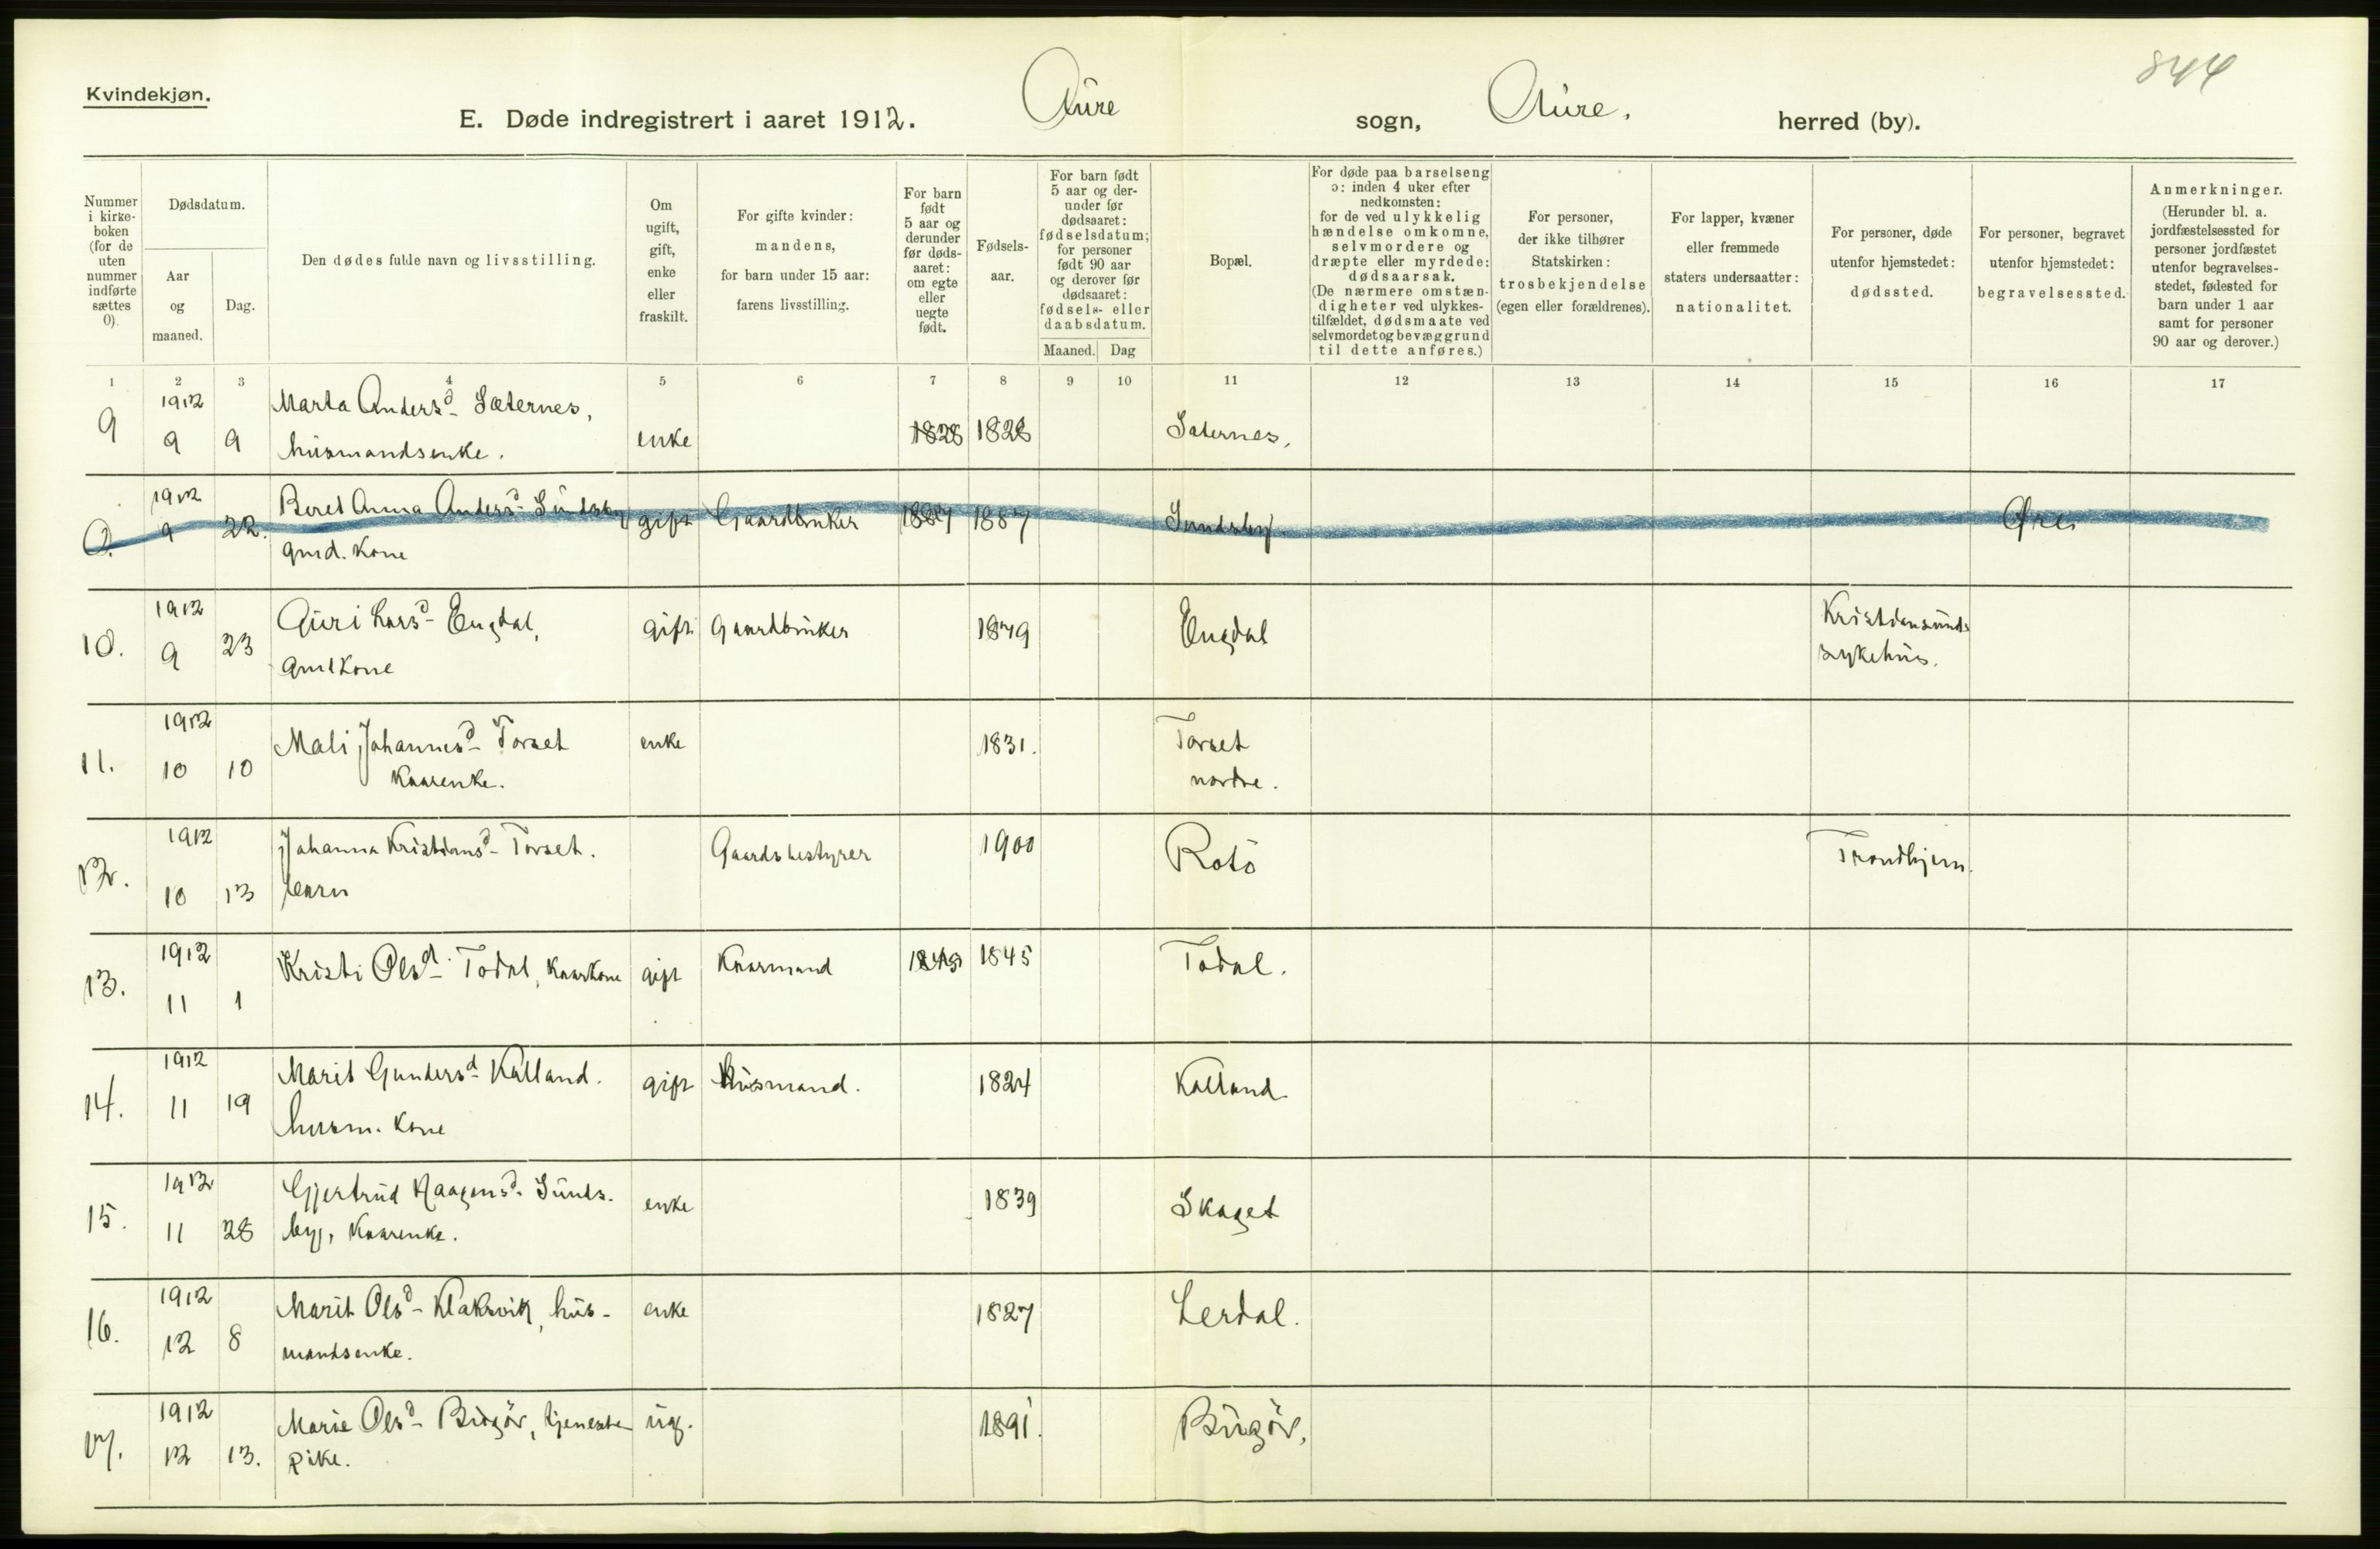 844
Kvindekjøn.
E. Døde indregistrert i aaret 1912. Aure sogn, Aure. herred (by).
Nummer i kirke-boken (for de uten nummer indførte sættes 0).
Dødsdatum.
Aar og maaned.
Dag.
Den dødes fulde navn og livsstilling.
Om ugift, gift, enke eller fraskilt.
For gifte kvinder: mandens, for barn under 15 aar: farens livsstilling.
For barn født 5 aar og derunder før døds-aaret: om egte eller uegte født.
Fødsels-aar.
For barn født 5 aar og der-under før dødsaaret: fødselsdatum; for personer født 90 aar og derover før dødsaaret: fødsels- eller daabsdatum.
Maaned. Dag
Bopæl.
For døde paa barselseng ɔ: inden 4 uker efter nedkomsten: for de ved ulykkelig hændelse omkomne, selvmordere og dræpte eller myrdede: dødsaarsak. (De nærmere omstæn-digheter ved ulykkes-tilfældet, dødsmaate ved selvmordet og bevæggrund til dette anføres.)
For personer, der ikke tilhører Statskirken: trosbekjendelse (egen eller forældrenes).
For lapper, kvæner eller fremmede staters undersaatter: nationalitet.
For personer, døde utenfor hjemstedet: dødssted.
For personer, begravet utenfor hjemstedet: begravelsessted.
Anmerkninger. (Herunder bl. a. jordfæstelsessted for personer jordfæstet utenfor begravelses-stedet, fødested for barn under 1 aar samt for personer 90 aar og derover.)
1 2 3 4 5 6 7 8 9 10 11 12 13 14 15 16 17
1912 Marta Andersd Sæternes,
9 9 9 husmandsenke. enke 1828 1828 Sæternes.
1912 Beret Anna Andersd Sundsby
0. 9 22. gmd. Kone gift Gaardbruker 1887 1887 Sundsby Øre.
1912 Guri Larsd Engdal,
10. 9 23 gmdkone gift Gaardbruker 1849 Engdal Kristiansunds sykehus.
1912 Mali Johannesd Torset
11. 10 10 Kaarenke. enke 1831. Torset nordre.
1912 Johanna Kristiansd Torset.
12. 10 13 barn Gaardsbestyrer 1900 Rotö Trondhjem.
1912 Kristi Olsd Todal, Kaarkone
13. 11 1 gift Kaarmand 1845 1845 Todal.
1912 Marit Gundersd Kalland.
14. 11 19 husm. Kone gift Husmand. 1824 Kalland
1912 Gjertrud Haagensd. Sunds-
15. 11 28 by, Kaarenke. enke 1839 Skaget
1912 Marit Olsd Klaksvik, hus-
16. 12 8 mandsenke. enke 1827 Lerdal.
1912 Marie Olsd Bugör, tjeneste
17. 12 13. pike. ug. 1891. Bugör.